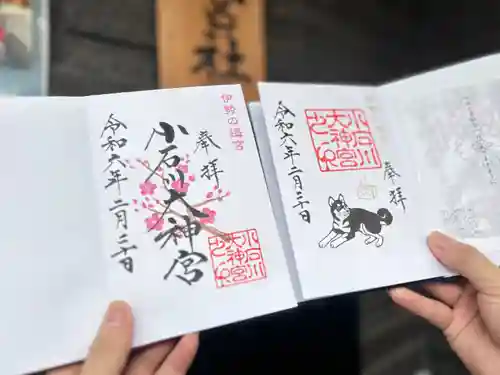 社
伊勢の遥宮
奉拝
小石川大神宮
令和六年二月二十日
小石川
大神宮
之印
奉拝
令和六年二月二十日
小石川
大神宮
之印